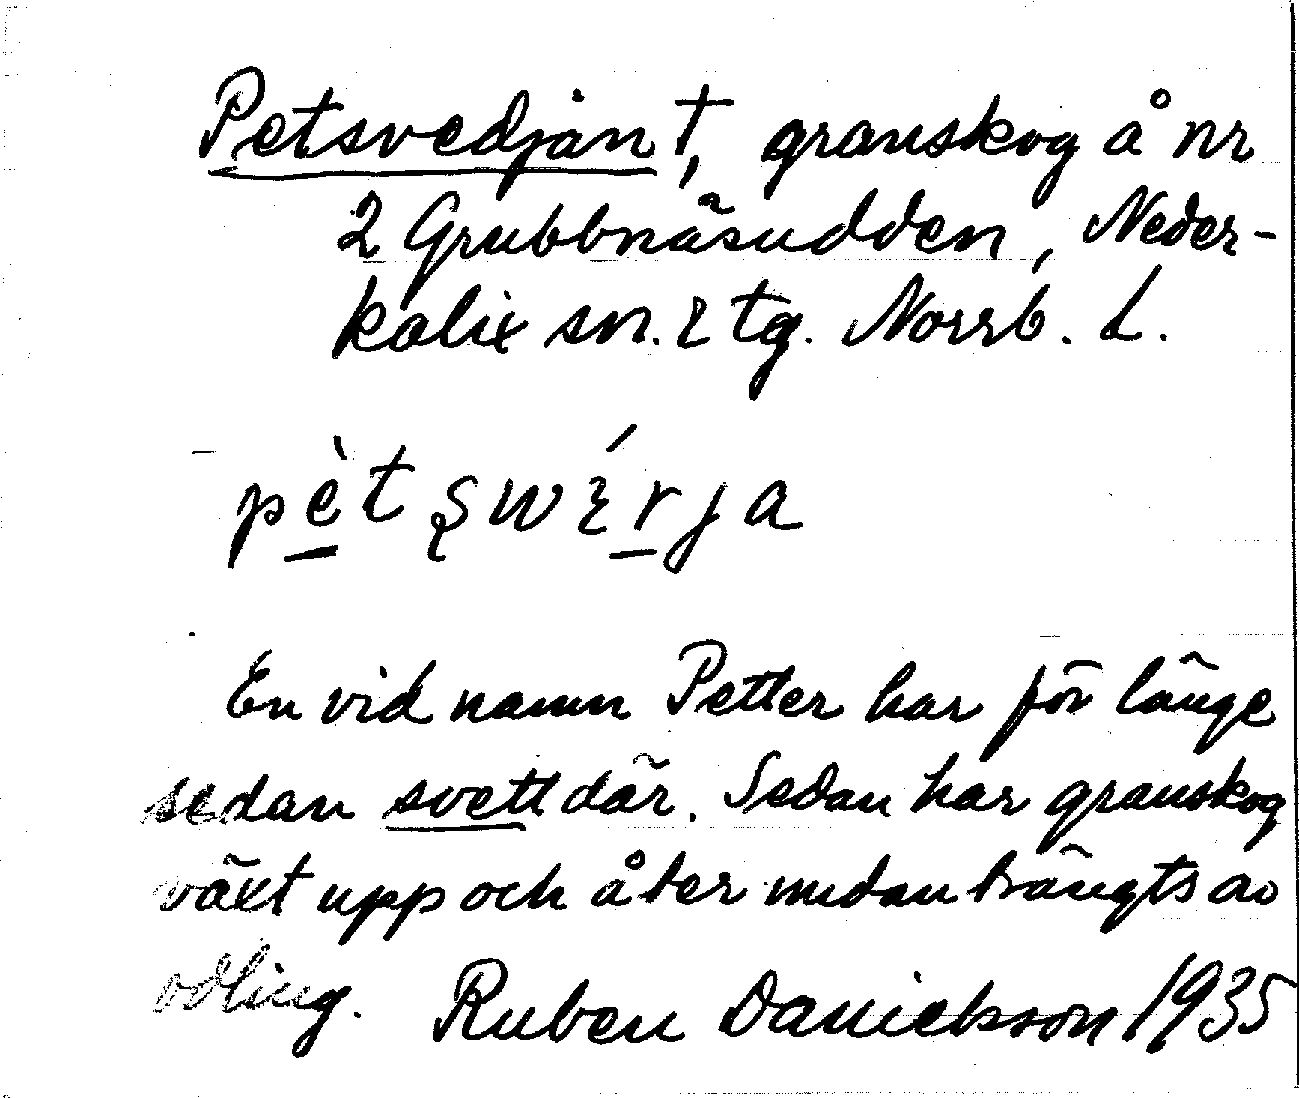 Petsvedjan †, granskog å nr
2 Grubbnäsudden, Neder-
kalix sn. & tg. Norrb. L.
pètswɛ́rja
En vid namn Petter har för länge
sedan svett där. Sedan har granskog
växt upp och åter undanträngts av
odling. Ruben Danielsson 1935